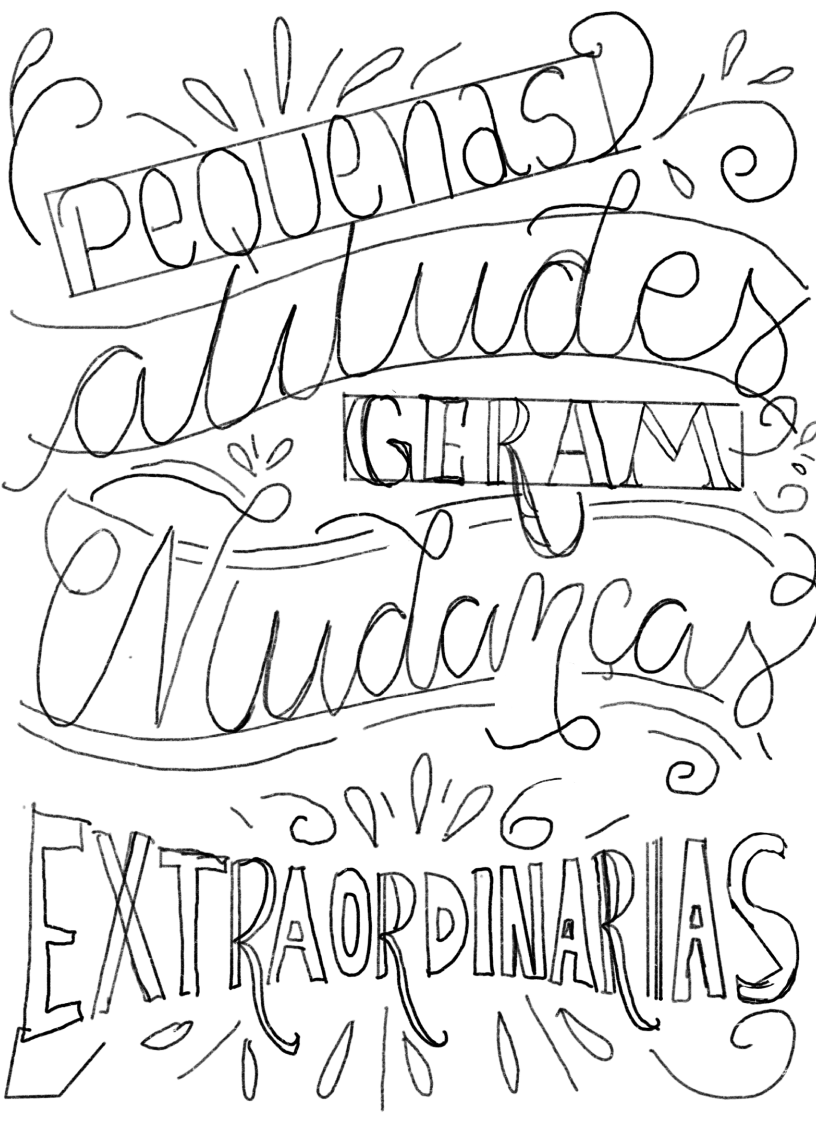 pequenas
atitudes
GERAM
Mudanças
EXTRAORDINARIAS